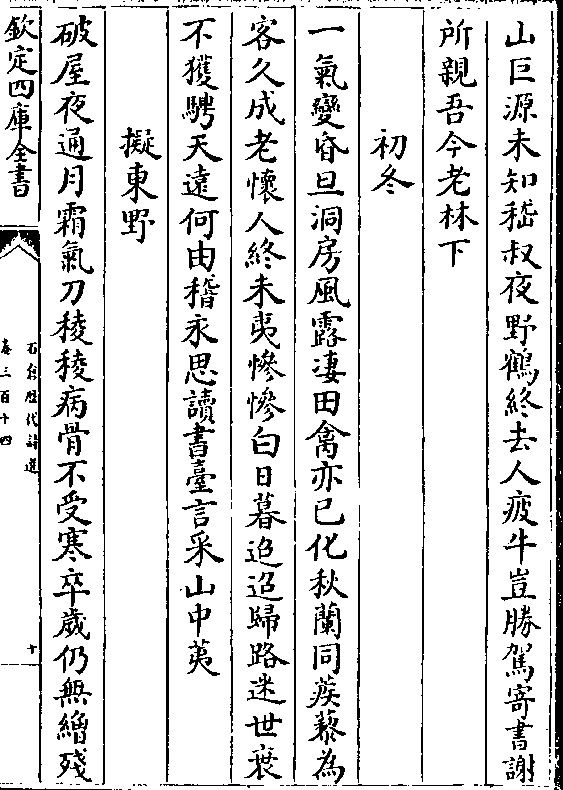 山巨源未知嵇叔夜野鶴終去人疲牛豈勝駕寄書謝
所親吾今老林下
初冬
一氣變昏旦洞房風露凄田禽亦已化秋蘭同蒺藜為
客久成老懷人終未夷慘慘白日暮迢迢歸路迷世衰
不獲騁天遠何由稽永思讀書臺言采山中荑
擬東野
破屋夜通月霜氣刀稜稜病骨不受寒卒歲仍無繒殘
欽定四庫全書
石倉歷代詩選
卷三百十四
十